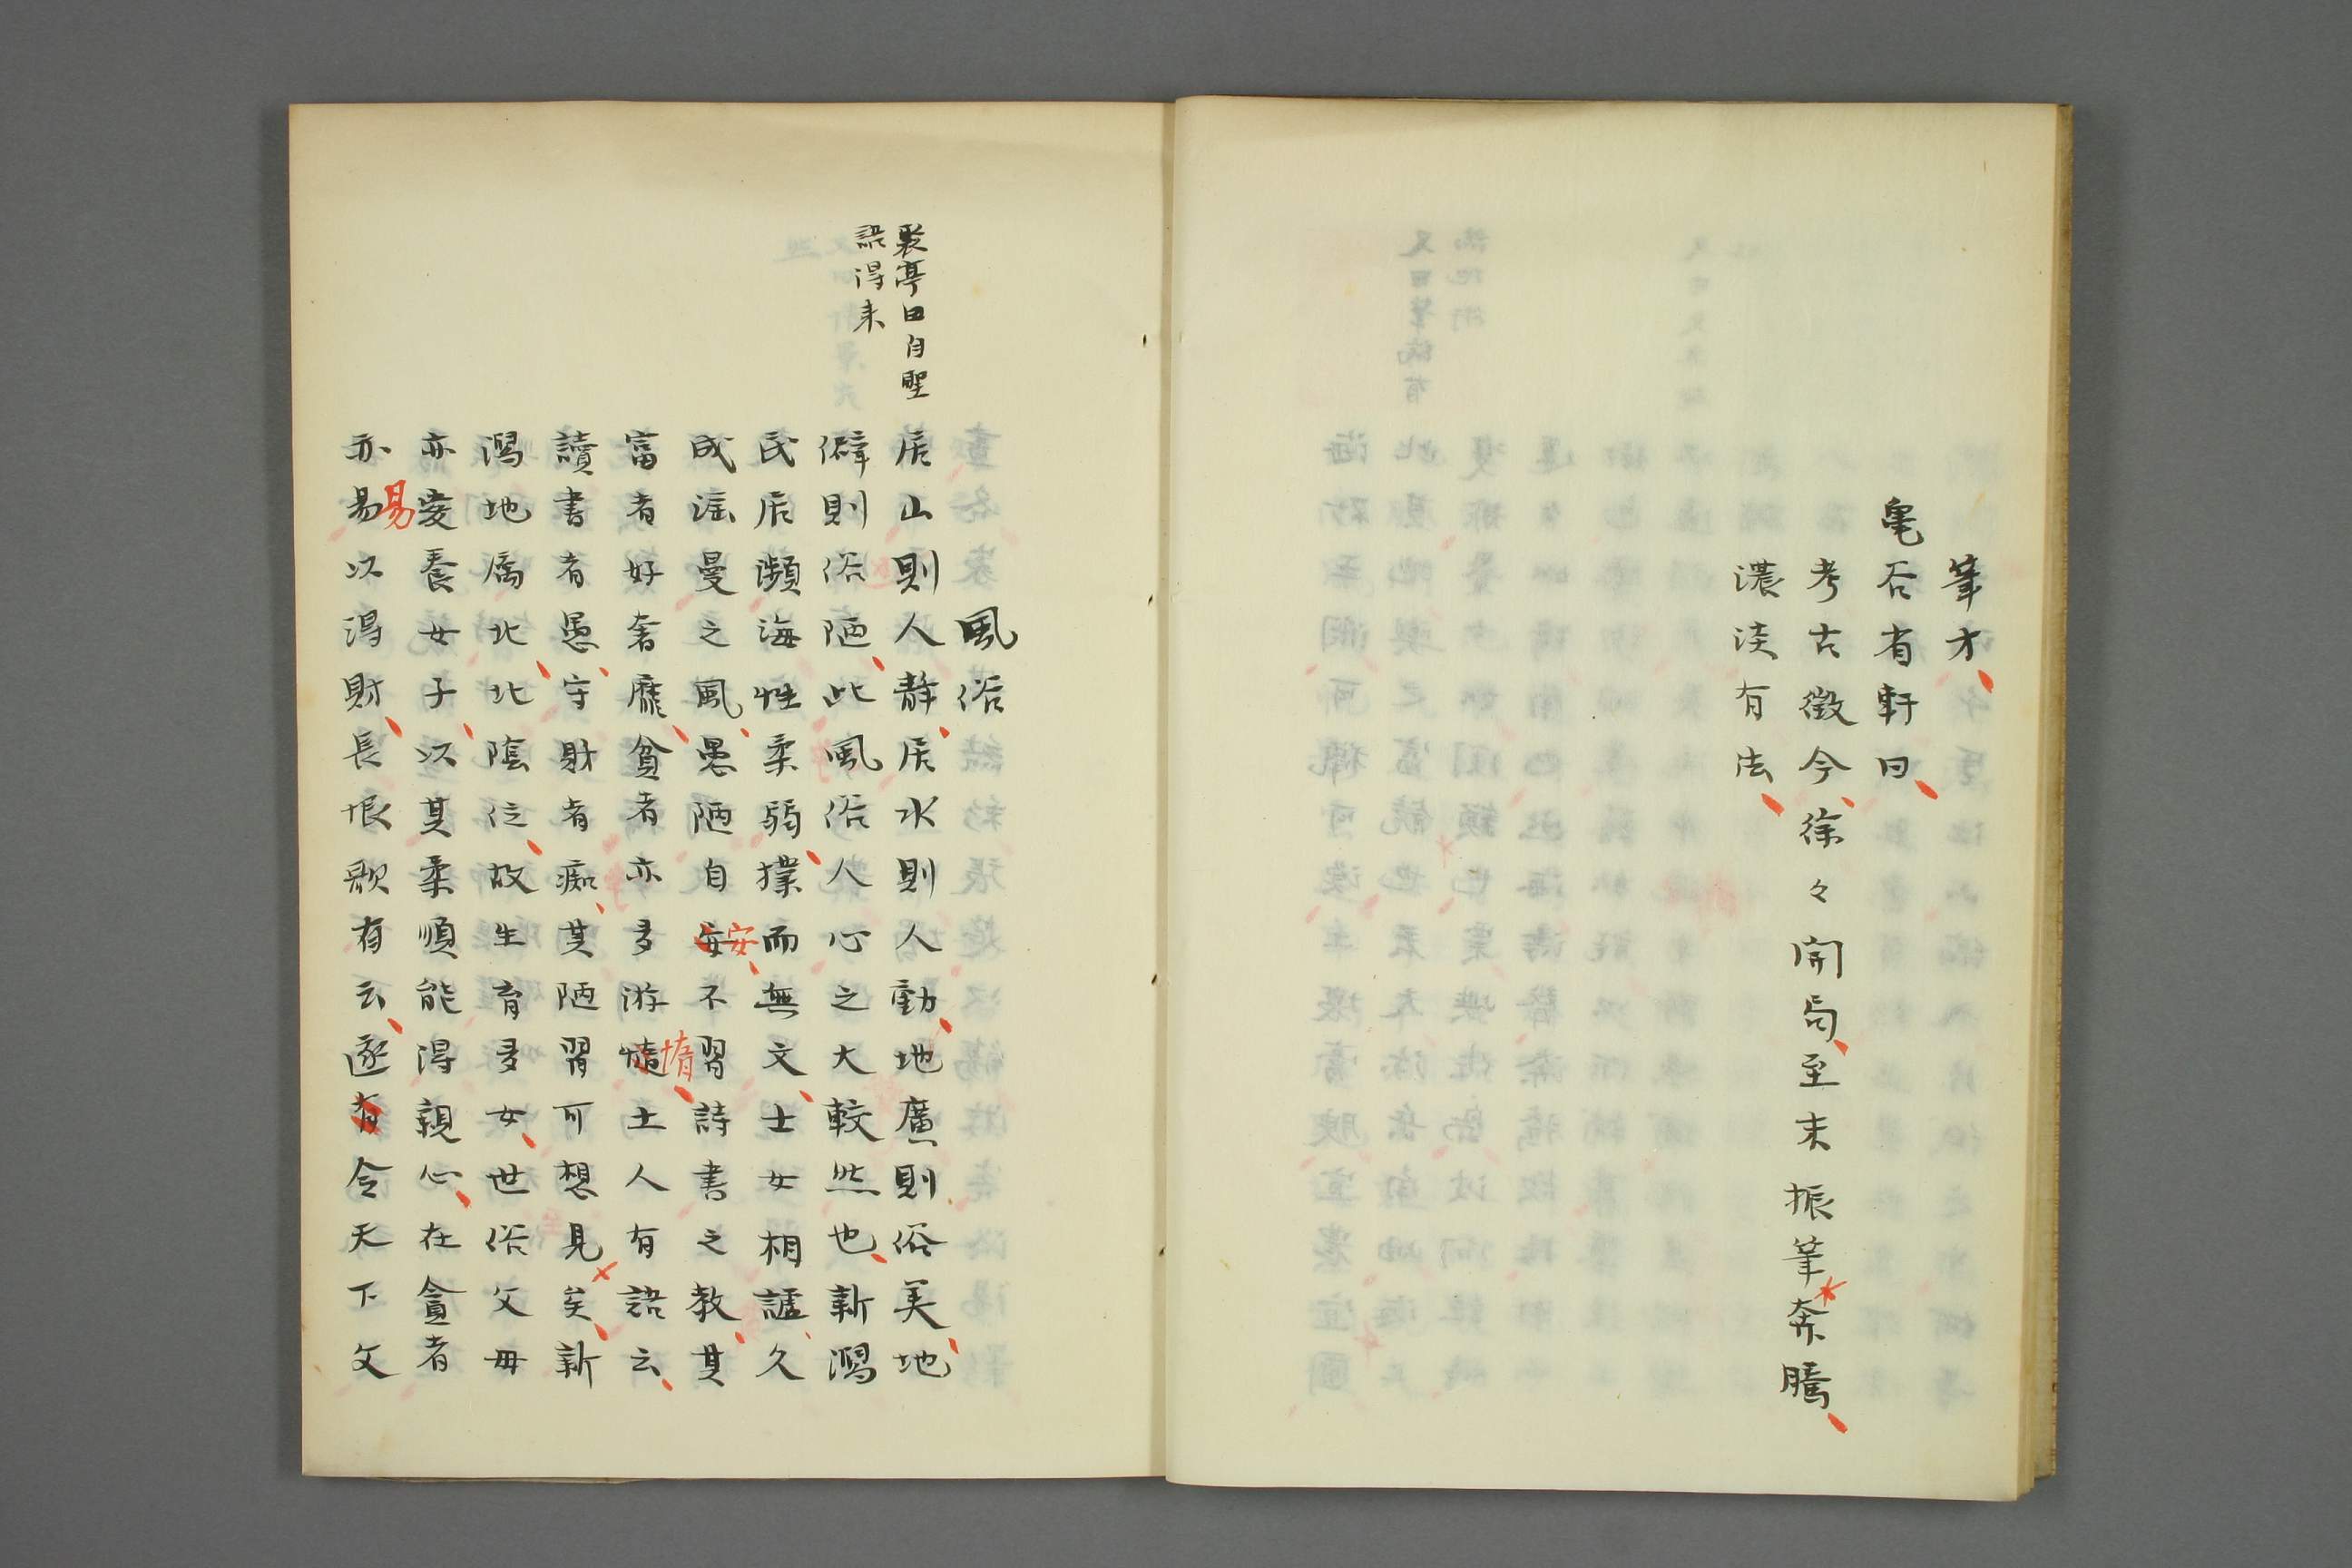 筆才
亀谷省軒曰
考古徴今徐々開局至末振筆奔騰
濃淡有法
風俗
裳亭曰自聖
談得来
居山則人静居水則人動地廣則俗美地
僻則俗陋此風俗人心之大較然也新潟
民居瀕海性柔弱撲而無文士女相謔久
成滛曼之風愚陋自每安不習詩書之教其
富者好奢靡貧者亦多游惰惰土人有語云
讀書者愚守財者痴其陋習可想見矣新
潟地属北北陰位故生育多女世俗父毋
亦愛養女子以其柔順能得親心在貪者
亦易易以得財長恨歌有云遂有令天下父